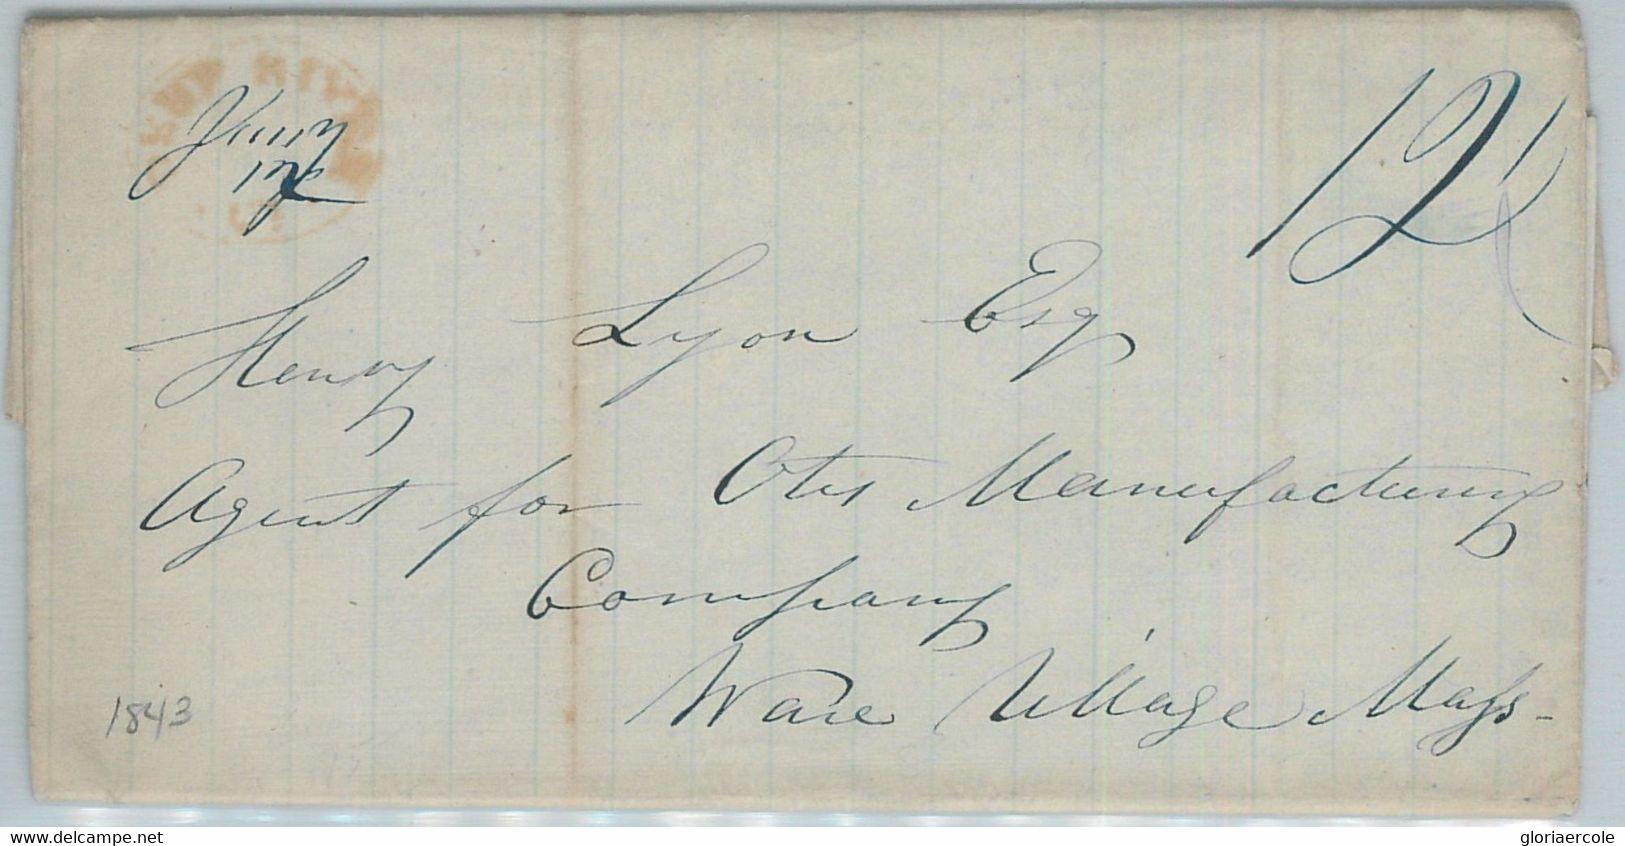 12 1/2
Henry Lyon Esq
Agent for Otis Manufacturing
Company
Ware Village Mass.
1843
www.delcampe.net
gloriaercole